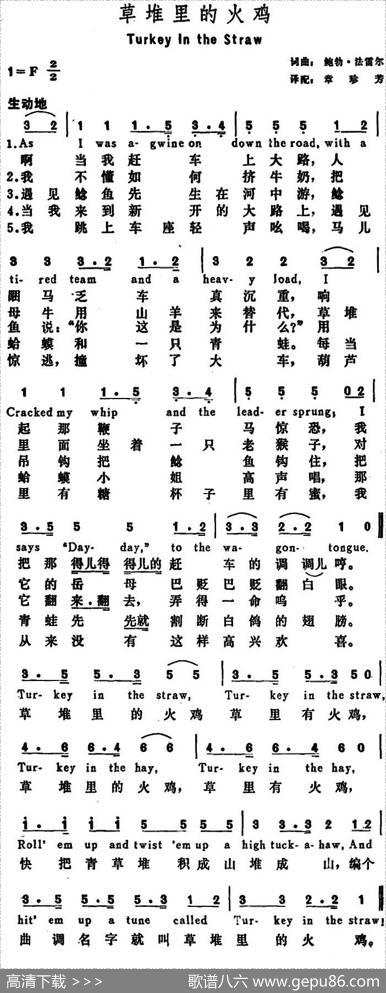 草堆里的火鸡
Turkey In the Straw
1=F 2/2
词曲：鲍勃·法雷尔
译配：章珍芳
生动地
3 2 | 1 1 1·5 3·4 | 5 5 5
1.As I was a-gwine on down the road, with a
啊 当我赶 车 上大路，人
2.我 不懂如 何 挤牛奶，把
3.遇见 鲶鱼先 生在河中游，鲶
4.当我 来到新 开的大路上，遇见
5.我 跳上车座轻 声吆喝，马儿
3 3 3·2 1·2 | 3 2 2 3 2
ti-red team and a heav-y load, I
困马乏 车 真沉重，响
母牛用 山羊来替代，草堆
鱼说：“你 这是为什么？”用
蛤蟆和 一只青 蛙。每当
惊逃，撞 坏了大 车，葫芦
1 1 1·5 3·4 | 5 5 5 02
Cracked my whip and the lead-er sprung; I
起那鞭 子 马惊恐，我
里面坐着 一只老猴子，对
吊钩把 鲶 鱼钩住，把
蛤蟆小 姐 高声唱，那
里有糖 杯子里有蜜，我
3·5 5 5 1·2 | 3·3 2·2 1 0
says “Day-day,” to the wa-gon-tongue.
把那得儿得 得儿的赶 车的调调儿哼。
它的岳 母 巴眨巴眨翻白眼。
它翻来·翻去，弄得一命呜 乎。
青蛙先 先就 割断白鸽的翅膀。
从来没 有 这样高兴欢 喜。
3·5 5·3 5 5 | 3·5 5·3 5 0
Tur-key in the straw, Tur-key in the straw,
草堆里的火鸡 草里有火鸡，
4·6 6·4 6 6 | 4·6 6·4 6 0
Tur-key in the hay, Tur-key in the hay,
草堆里的火鸡，草里有火鸡，
i·i i i 5 5 5 5 | 3 3 3·2 2 1 2
Roll' em up and twist 'em up a high tuck-a-haw, And
快把青草堆 积成山堆成 山，编个
3·5 5·5 5·3 3·4 | 5 3 2·2 1 0
hit' em up a tune called Tur-key in the straw;
曲调名字就叫草堆里的火 鸡。
高清下载 >>>
歌谱八六 www.gepu86.com